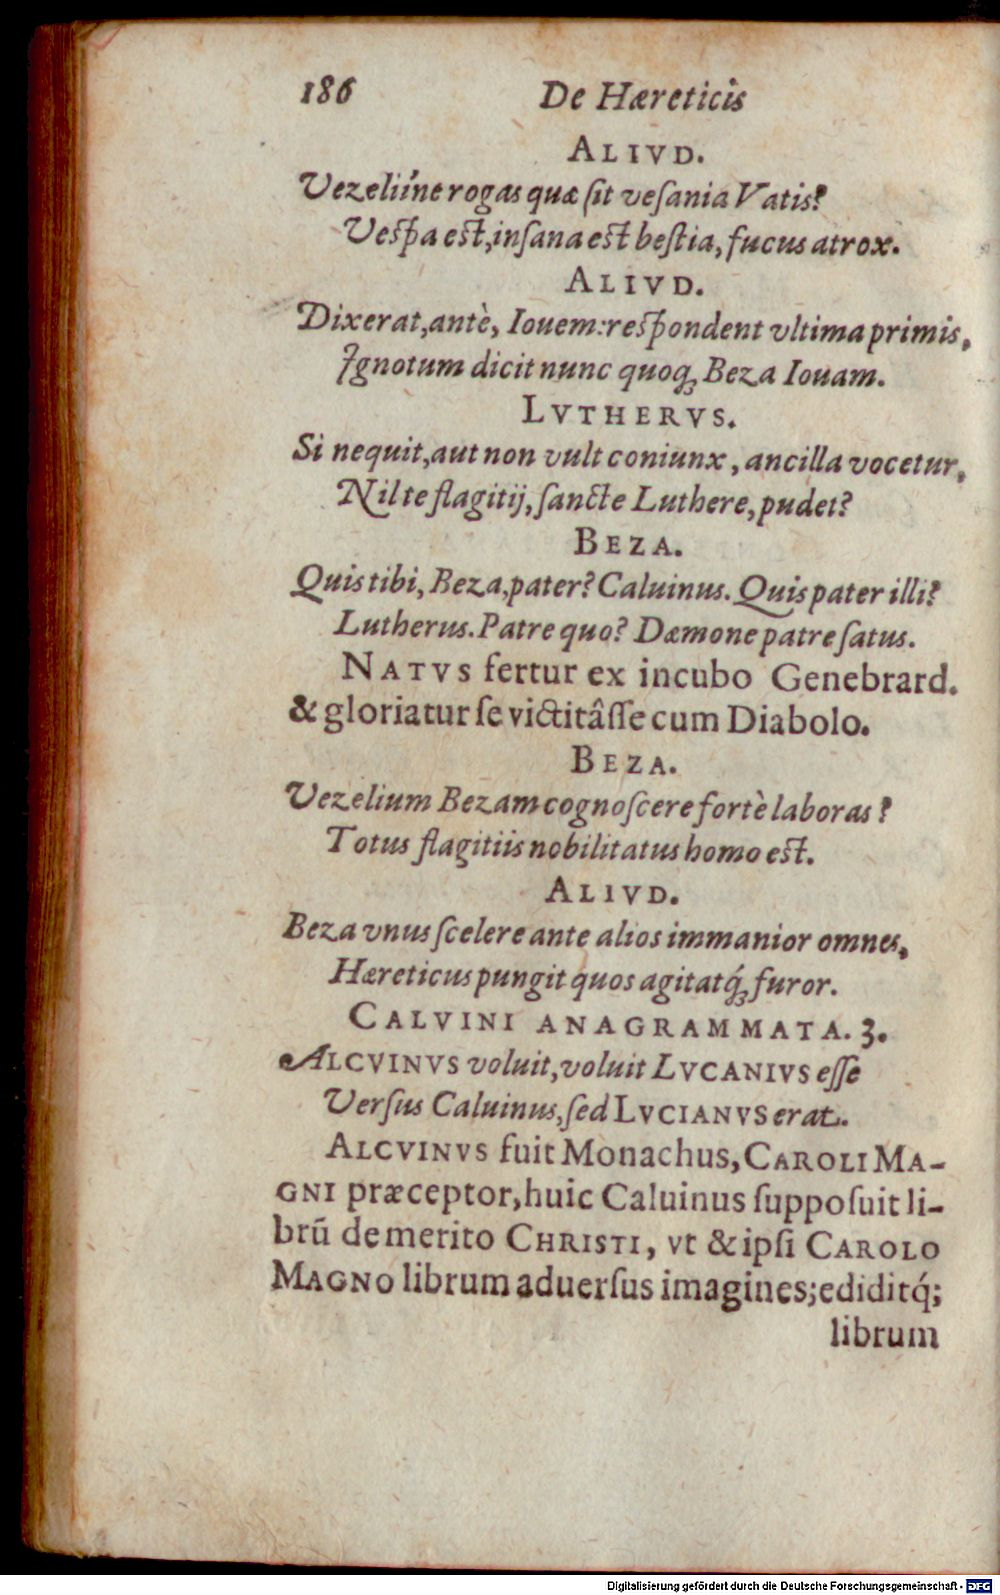 186 De Hæreticis
ALIVD.
Vezeliíne rogas quæ ſit veſania Vatis?
Veſpa eſt, inſana eſt beſtia, fucus atrox.
ALIVD.
Dixerat, antè, Iouem: reſpondent vltima primis,
Ignotum dicit nunc quoq; Beza Iouam.
LVTHERVS.
Si nequit, aut non vult coniunx, ancilla vocetur,
Nil te flagitij, ſancte Luthere, pudet?
BEZA.
Quis tibi, Beza, pater? Caluinus. Quis pater illi?
Lutherus. Patre quo? Dæmone patre ſatus.
NATVS fertur ex incubo Genebrard.
& gloriatur ſe victitâſſe cum Diabolo.
BEZA.
Vezelium Bezam cognoſcere fortè laboras?
Totus flagitiis nobilitatus homo eſt.
ALIVD.
Beza vnus ſcelere ante alios immanior omnes,
Hæreticus pungit quos agitatq́; furor.
CALVINI ANAGRAMMATA. 3.
ALCVINVS voluit, voluit LVCANIVS eſſe
Verſus Caluinus, ſed LVCIANVS erat.
ALCVINVS fuit Monachus, CAROLI MA-
GNI præceptor, huic Caluinus ſuppoſuit li-
brū de merito CHRISTI, vt & ipſi CAROLO
MAGNO librum aduerſus imagines; ediditq́;
librum
Digitalisierung gefördert durch die Deutsche Forschungsgemeinschaft - DFG